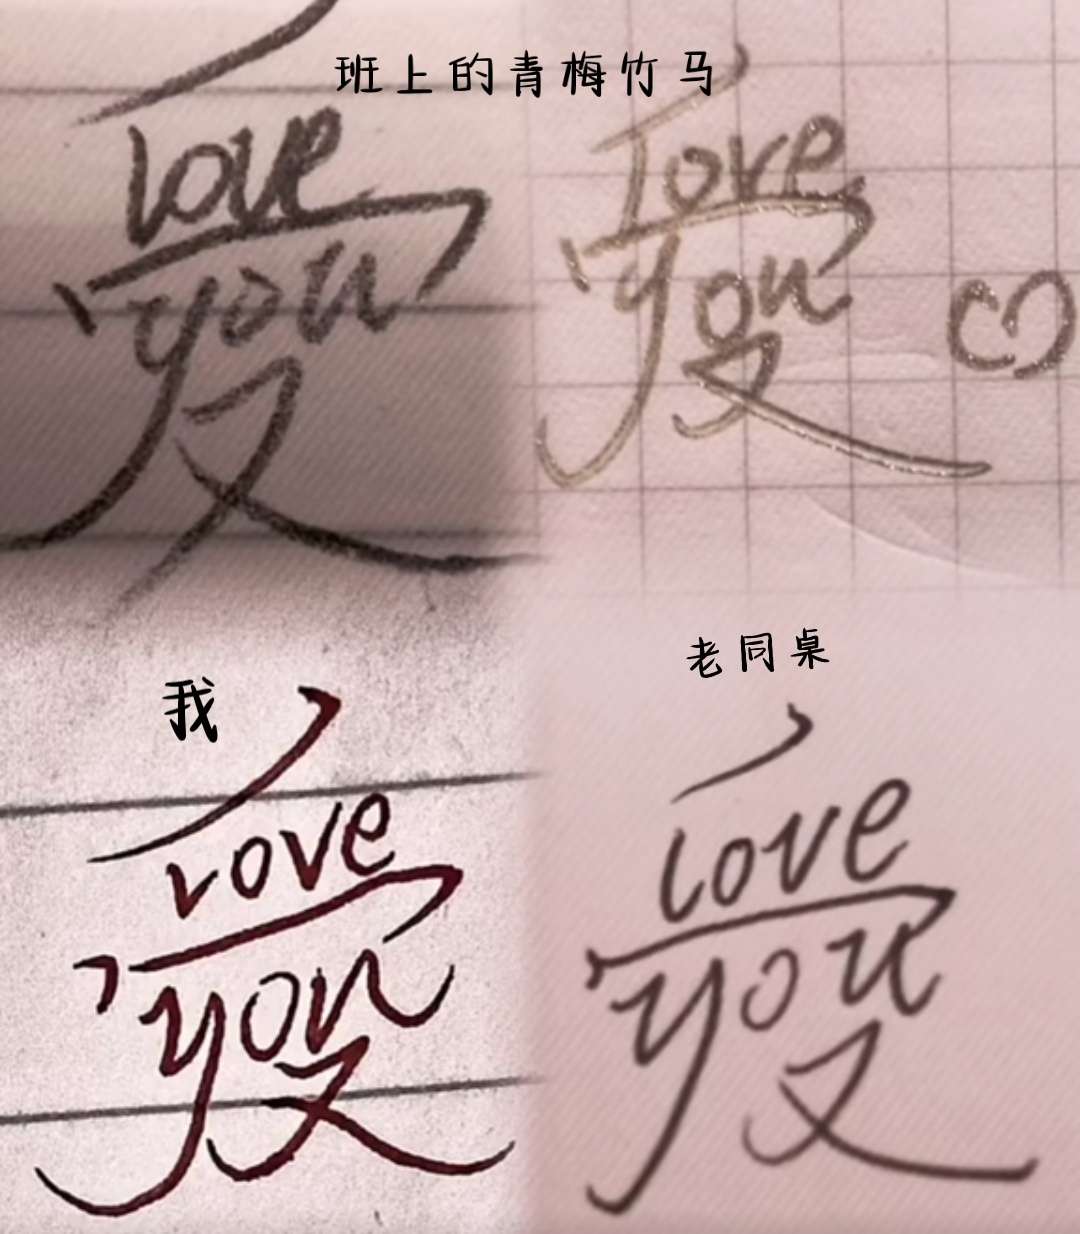 班上的青梅竹马
love
you
love
you
我
love
you
老同桌
love
you